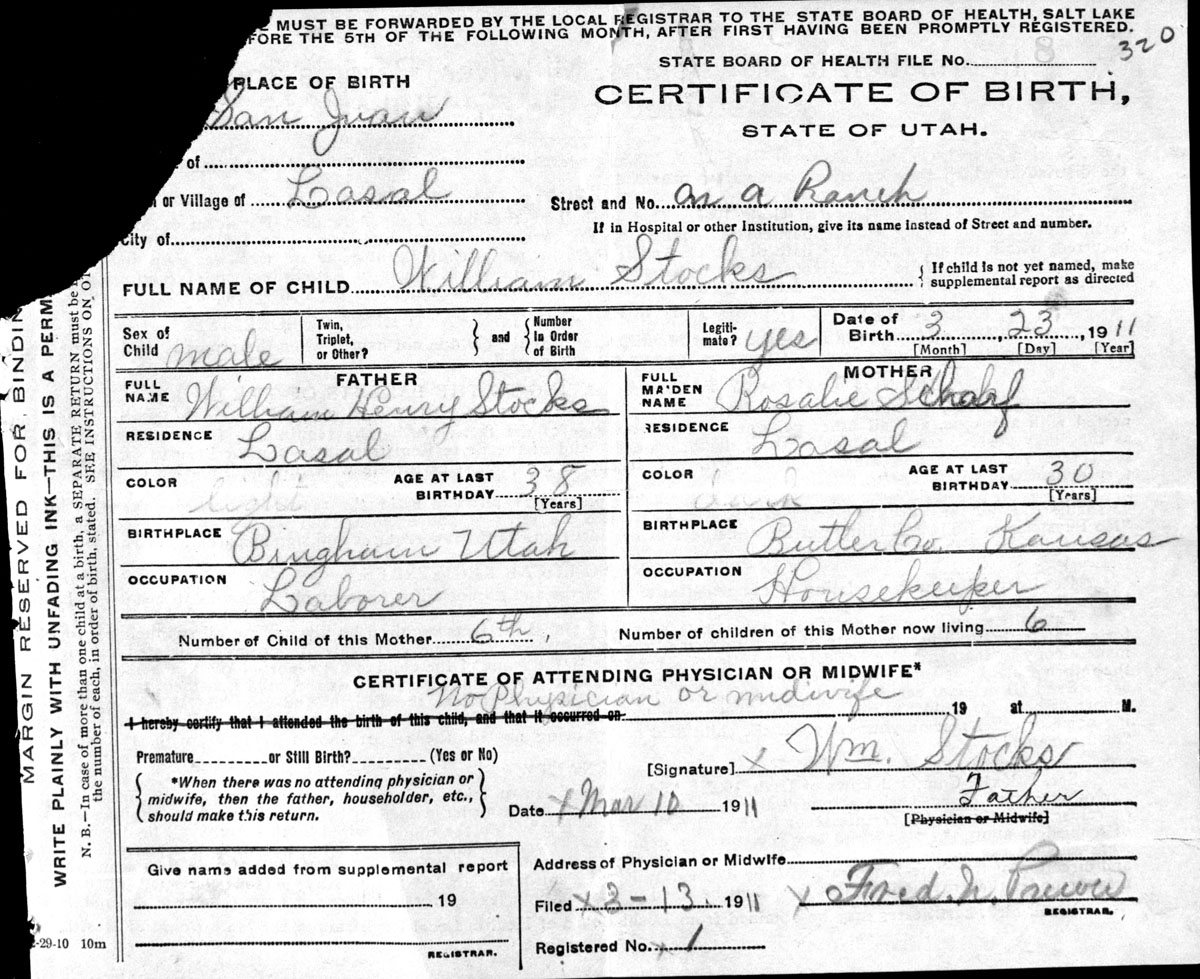 E MUST BE FORWARDED BY THE LOCAL REGISTRAR TO THE STATE BOARD OF HEALTH, SALT LAKE
FORE THE 5TH OF THE FOLLOWING MONTH, AFTER FIRST HAVING BEEN PROMPTLY REGISTERED.
320
STATE BOARD OF HEALTH FILE No.
PLACE OF BIRTH
CERTIFICATE OF BIRTH,
STATE OF UTAH.
San Juan
of
or Village of Lasal
Street and No. on a Ranch
If in Hospital or other Institution, give its name instead of Street and number.
City of
FULL NAME OF CHILD William Stocks { If child is not yet named, make
supplemental report as directed
Sex of Child male
Twin, Triplet, or Other?
and
Number In Order of Birth
Legiti-mate? yes
Date of Birth 3, 23, 1911
[Month] [Day] [Year]
FATHER
FULL NAME William Henry Stocks
RESIDENCE Lasal
COLOR light
AGE AT LAST BIRTHDAY 38
[Years]
BIRTHPLACE Bingham Utah
OCCUPATION Laborer
MOTHER
FULL MAIDEN NAME Rosalie Scharf
RESIDENCE Lasal
COLOR
AGE AT LAST BIRTHDAY 30
[Years]
BIRTHPLACE Butler Co. Kansas
OCCUPATION Housekeeper
Number of Child of this Mother 6th, Number of children of this Mother now living 6
CERTIFICATE OF ATTENDING PHYSICIAN OR MIDWIFE*
No Physician or midwife
I hereby certify that I attended the birth of this child, and that it occurred on 19 at M.
Premature or Still Birth? (Yes or No)
[Signature] x Wm. Stocks
*When there was no attending physician or
midwife, then the father, householder, etc.,
should make this return.
Date x Mar 10 1911
Father
[Physician or Midwife]
Give name added from supplemental report
19
REGISTRAR.
Address of Physician or Midwife
Filed x 3-13. 1911 x Fred. N.
REGISTRAR.
Registered No. x 1
MARGIN RESERVED FOR BINDIN
WRITE PLAINLY WITH UNFADING INK—THIS IS A PERM
N. B.—In case of more than one child at a birth, a SEPARATE RETURN must be
the number of each, in order of birth, stated. SEE INSTRUCTIONS ON
-29-10 10m